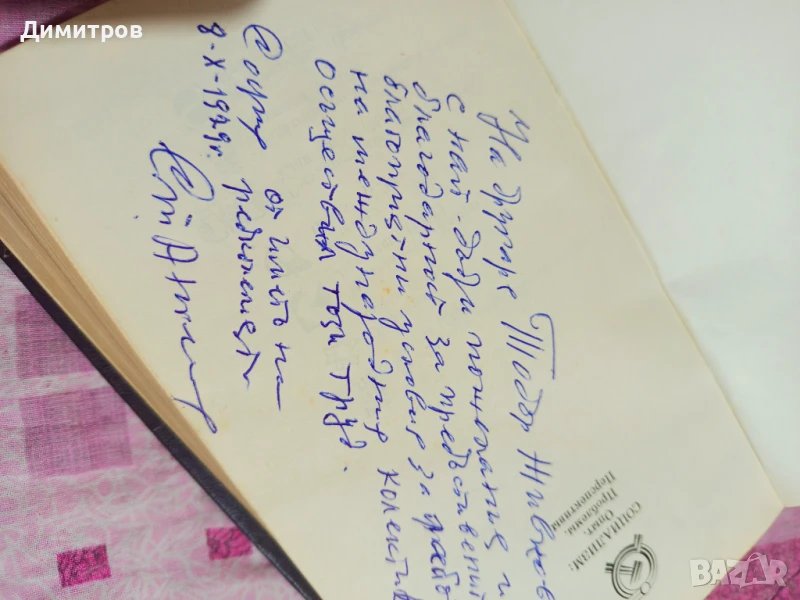 На другаря Тодор Живков
с най-добри пожелания и
благодарност за предоставените
благоприятни условия за работа
на международния колектив
осъществил този труд.
от името на
редколегията
София
8-X-1979г.
СОЦИАЛИЗМ:
Опыт,
Проблемы,
Перспективы
Димитров
BAZAR